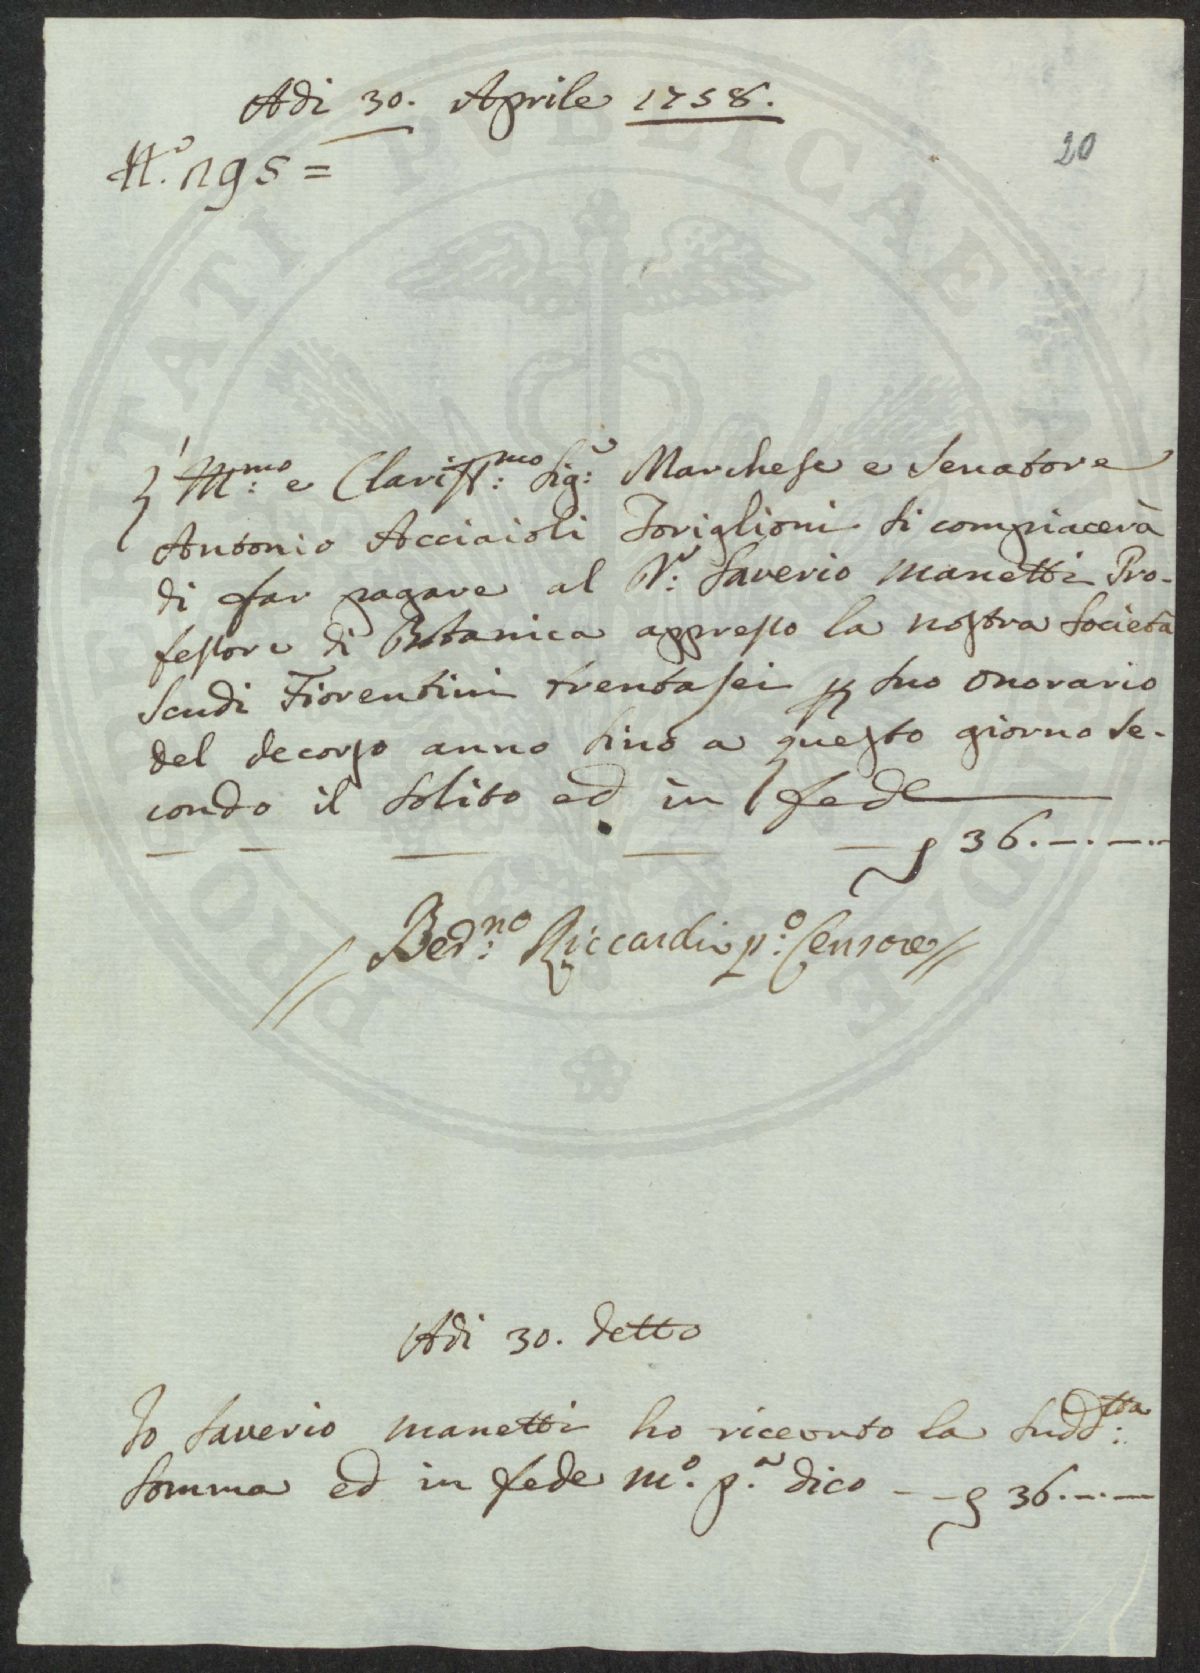 Adi 30. Aprile 1758.
20
N.º 195 =
L'Ill.mo e Clariss.mo Sig.r Marchese e Senatore
Antonio Acciaioli Toriglioni si compiacerà
di far pagare al D.r Saverio Manetti Pro-
fessore di Botanica appresso la nostra Società
Scudi Fiorentini trentasei p suo onorario
del decorso anno sino a questo giorno se-
condo il solito ed in fede
36.
Ber.no Riccardi p.º Censore
Adi 30. detto
Io Saverio Manetti ho riceuto la Sudd.tta
Somma ed in fede M.º p.a dico 36.
PROSPERITATI PUBLICAE AUGENDAE